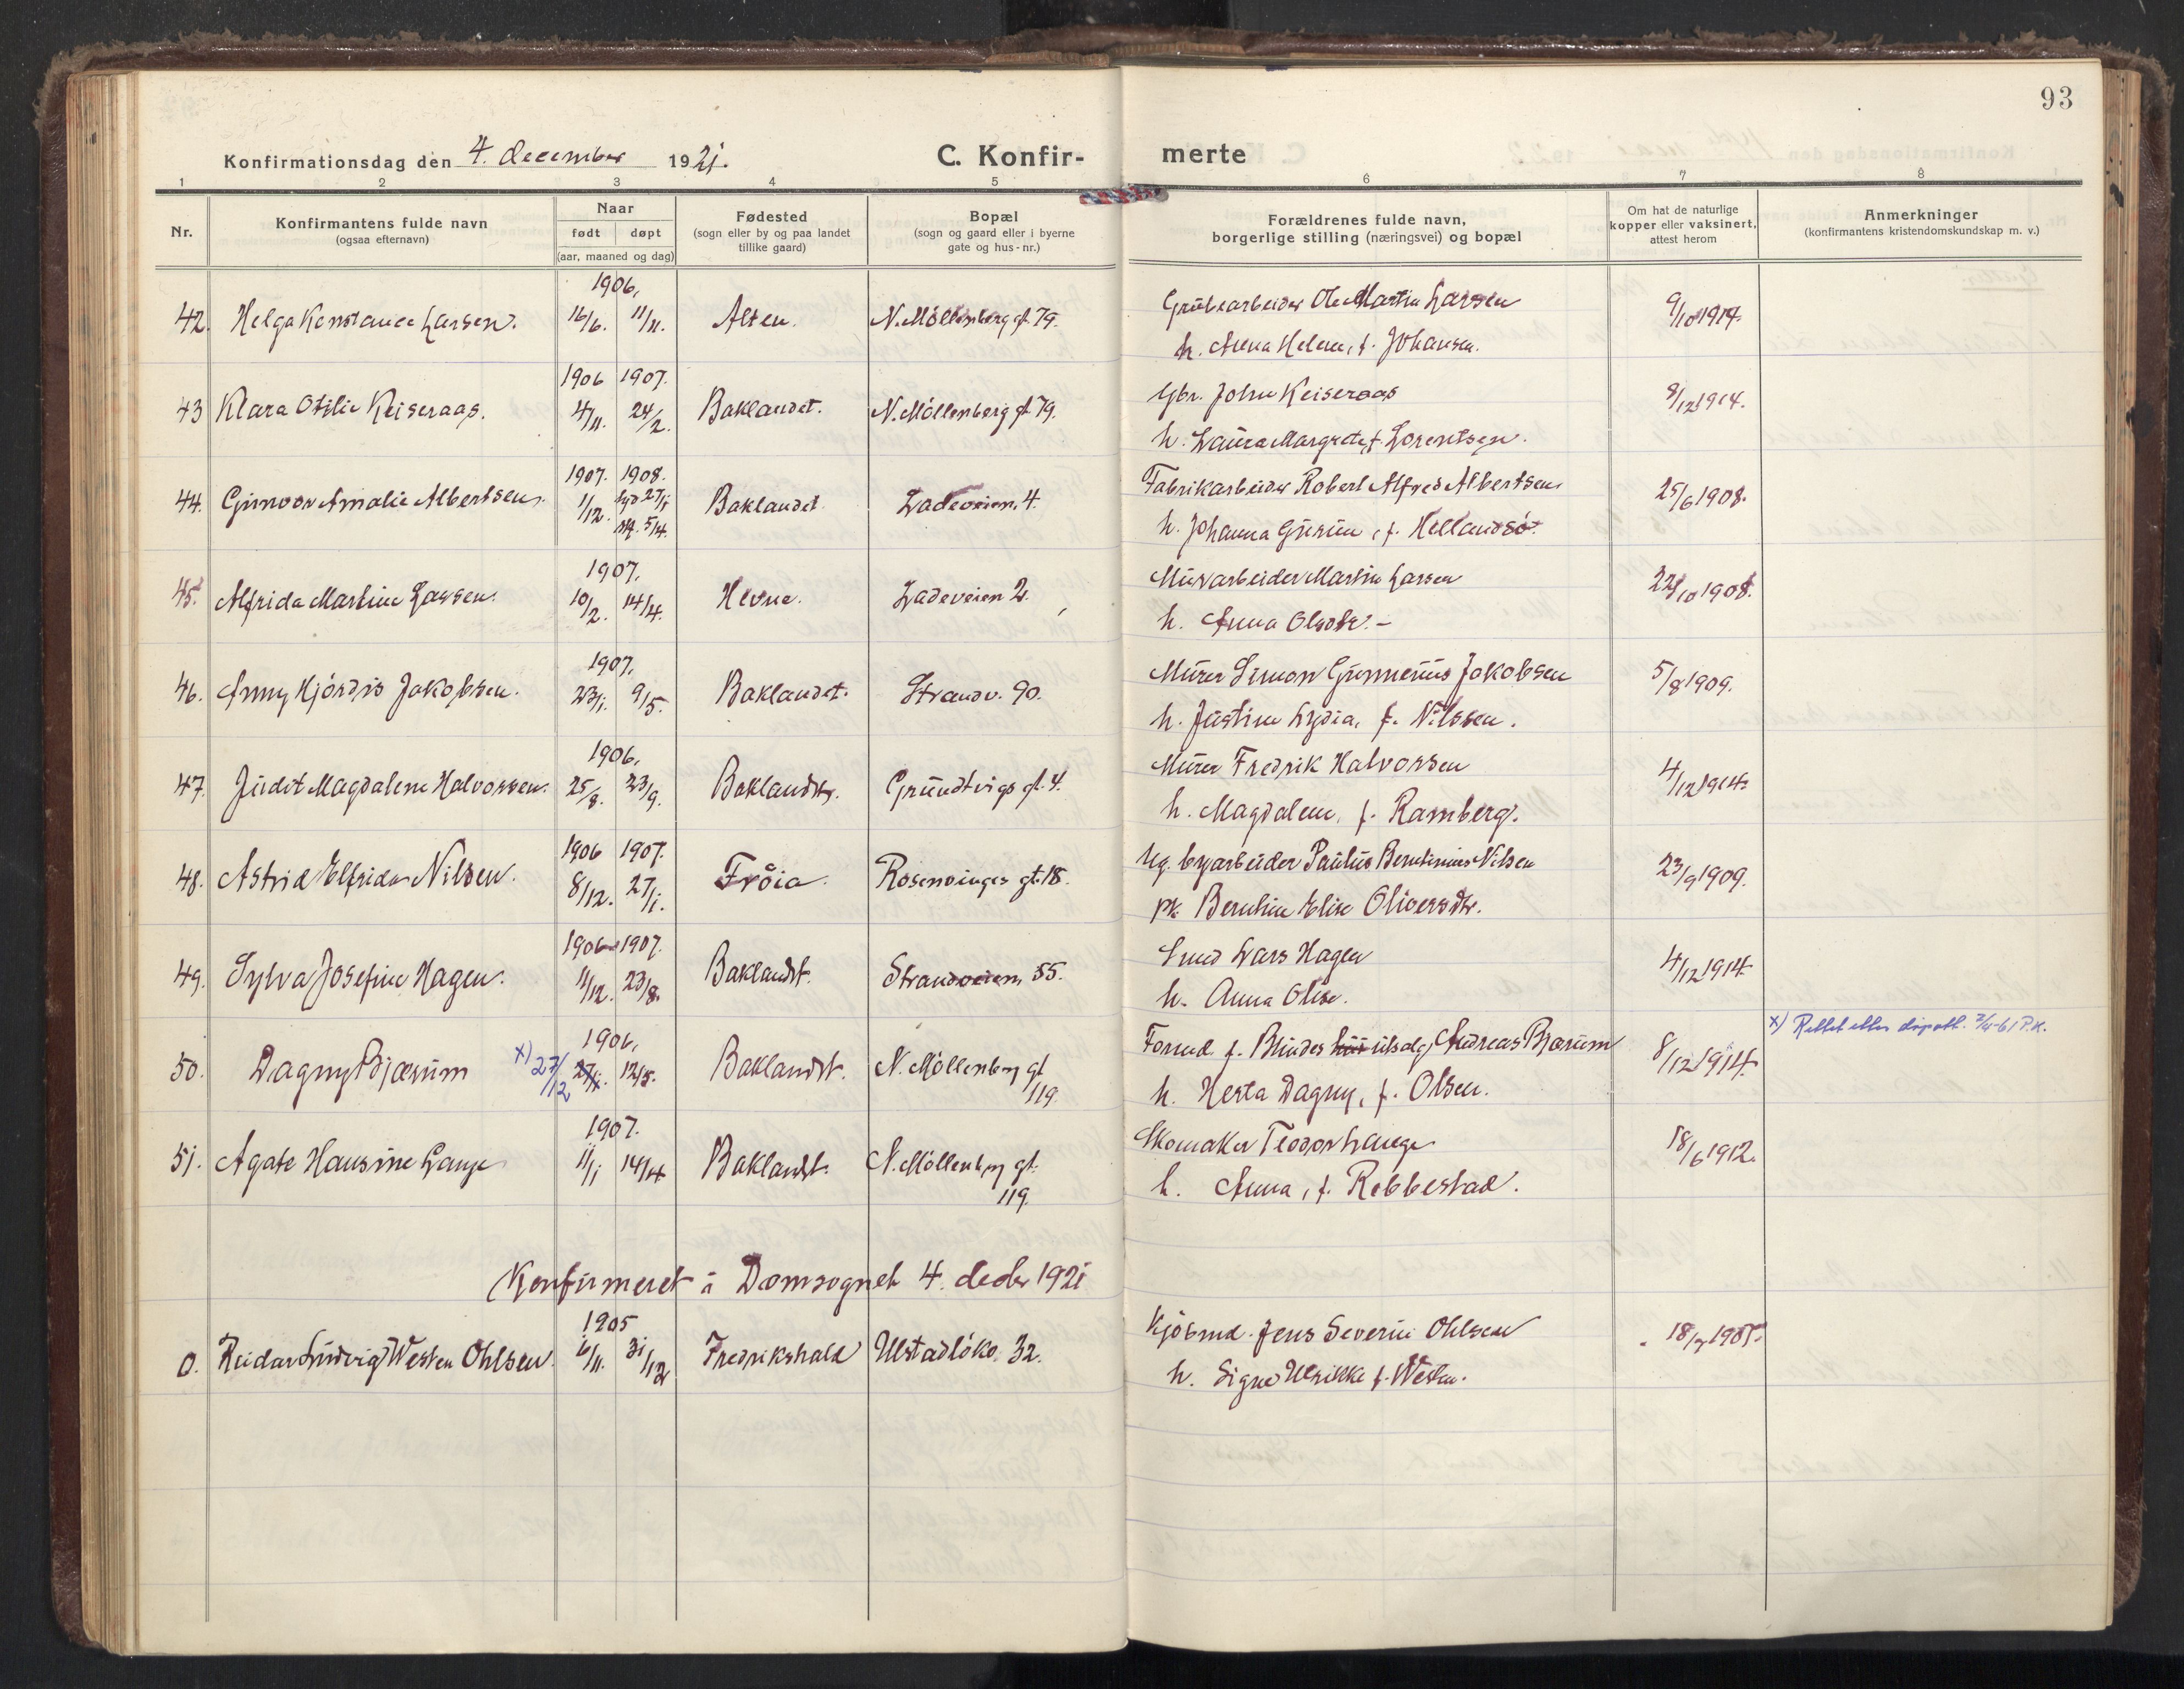 93
Konfirmationsdag den 4. december 1921.
C. Konfir-
merte
1 2 3 4 5 6 7 8
Nr.
Konfirmantens fulde navn
(ogsaa efternavn)
Naar
født døpt
(aar, maaned og dag)
Fødested
(sogn eller by og paa landet
tillike gaard)
Bopæl
(sogn og gaard eller i byerne
gate og hus-nr.)
Forældrenes fulde navn,
borgerlige stilling (næringsvei) og bopæl
Om hat de naturlige
kopper eller vaksinert,
attest herom
Anmerkninger
(konfirmantens kristendomskundskap m. v.)
1906.
42. Helga Konstance Larsen. 16/6. 11/11. Alten. N. Möllenberg gt. 79. Grubearbeider Ole Martin Larsen 9/10 1914.
h. Anna Helene, f. Johansen.
1906 1907.
43 Klara Otilie Keiseraas. 4/11. 24/2. Baklandet. N. Möllenberg gt. 79. Gbr. John Keiseraas 8/12 1914.
h. Laura Margrete, f. Lorentsen.
1907. 1908.
44. Gunvor Amalie Albertsen. 1/12. 27/1 5/4. Baklandet Ladeveien, 4. Fabrikarbeider Robert Alfred Albertsen 25/6 1908.
h. Johanna Gurine, f. Hellandsö.
1907.
45. Alfrida Martine Larsen. 10/2. 14/4. Hevne. Ladeveien 2. Murarbeider Martin Larsen 22/10 1908.
h. Anna Olsdtr. –
1907.
46. Anny Hjördis Jakobsen. 23/1. 9/5. Baklandet. Strandv. 90. Murer Simon Gunnerius Jakobsen 5/8 1909.
h. Justine Lydia, f. Nilssen.
1906.
47. Judit Magdalene Halvorsen. 25/8. 23/9. Baklandet. Grundtvigs gt. 4. Murer Fredrik Halvorsen 4/12 1914.
h. Magdalene, f. Ramberg.
1906 1907.
48. Astrid Elfrida Nilsen. 8/12. 27/1. Fröia. Rosenvinges gt. 18. Ug. byarbeider Paulus Berntinius Nilsen 23/9 1909.
pk. Berntine Elise Oliversdtr.
1906 1907.
49. Sylva Josefine Hagen. 11/12. 23/8. Baklandet. Strandveien, 55. Smed Lars Hagen 4/12 1914
h. Anna Olise.
1906. x) Rettet etter dåpsatt. 7/4-61 P.K.
50. Dagny Bjærum x) 27/12 27/1. 12/5. Baklandet. N. Möllenberg gt 119. Formd. f. Blindes utsalg, Andreas Bjærum 8/12 1914.
h. Herta Dagny, f. Olsen.
1907.
51. Agate Hansine Lange 11/1 14/4 Baklandet. N. Möllenberg gt. 119. Skomaker Teodor Lange 18/6 1912.
h. Anna, f. Rebbestad.
Konfirmeret i Domsognet 4. decbr 1921
1905
0. Reidar Ludvig Westen Ohlsen. 6/11. 31/12 Fredrikshald Ulstadlökv. 32. Kjöbmd. Jens Severin Ohlsen 18/7 1907.
h. Signe Ulrikke f. Westen.